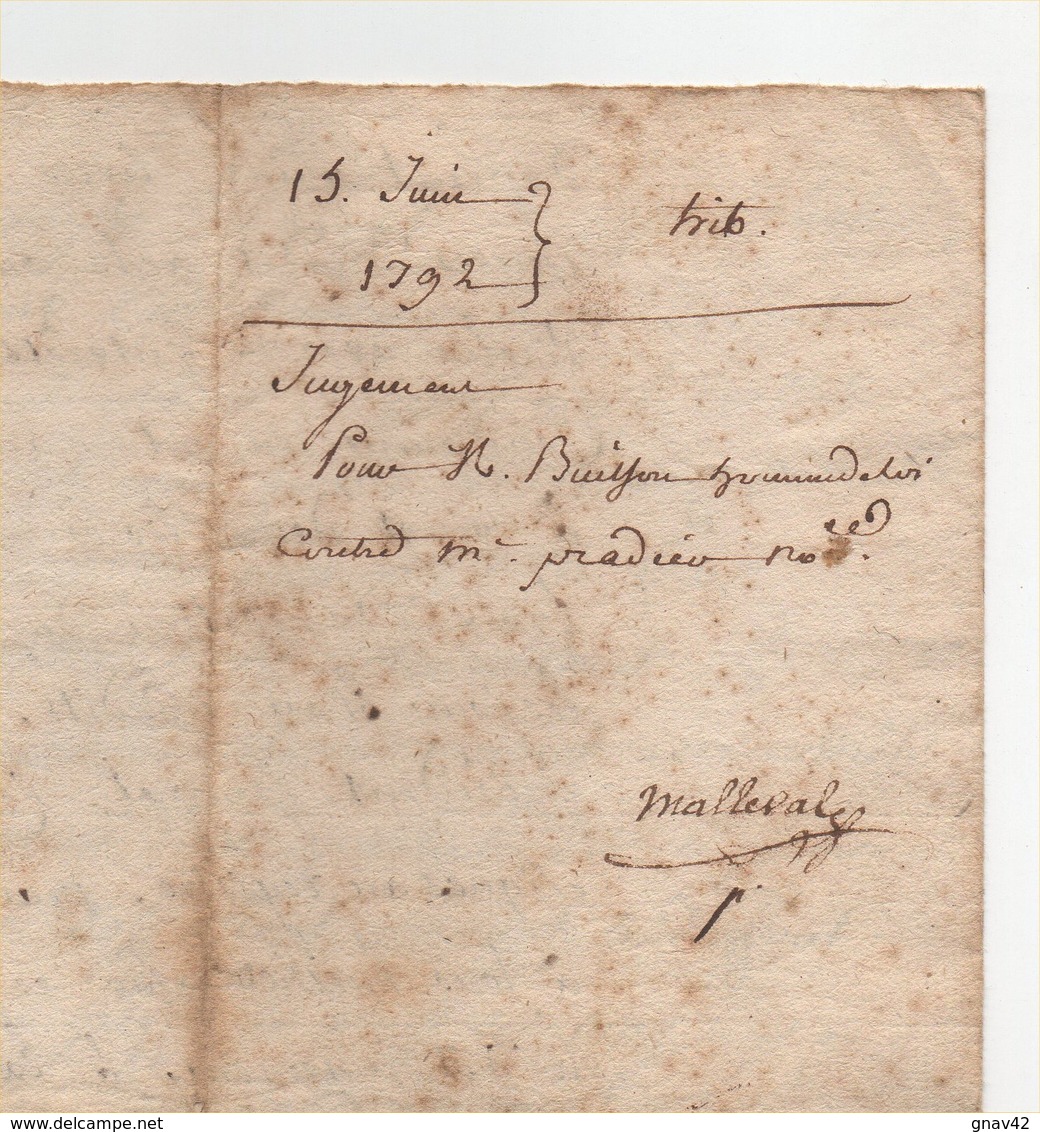 15. Juin
1792
trib.
Jugement
Pour N. Buisson hommedeloi
Contre me. pradier nore.
Malleval
www.delcampe.net
gnav42